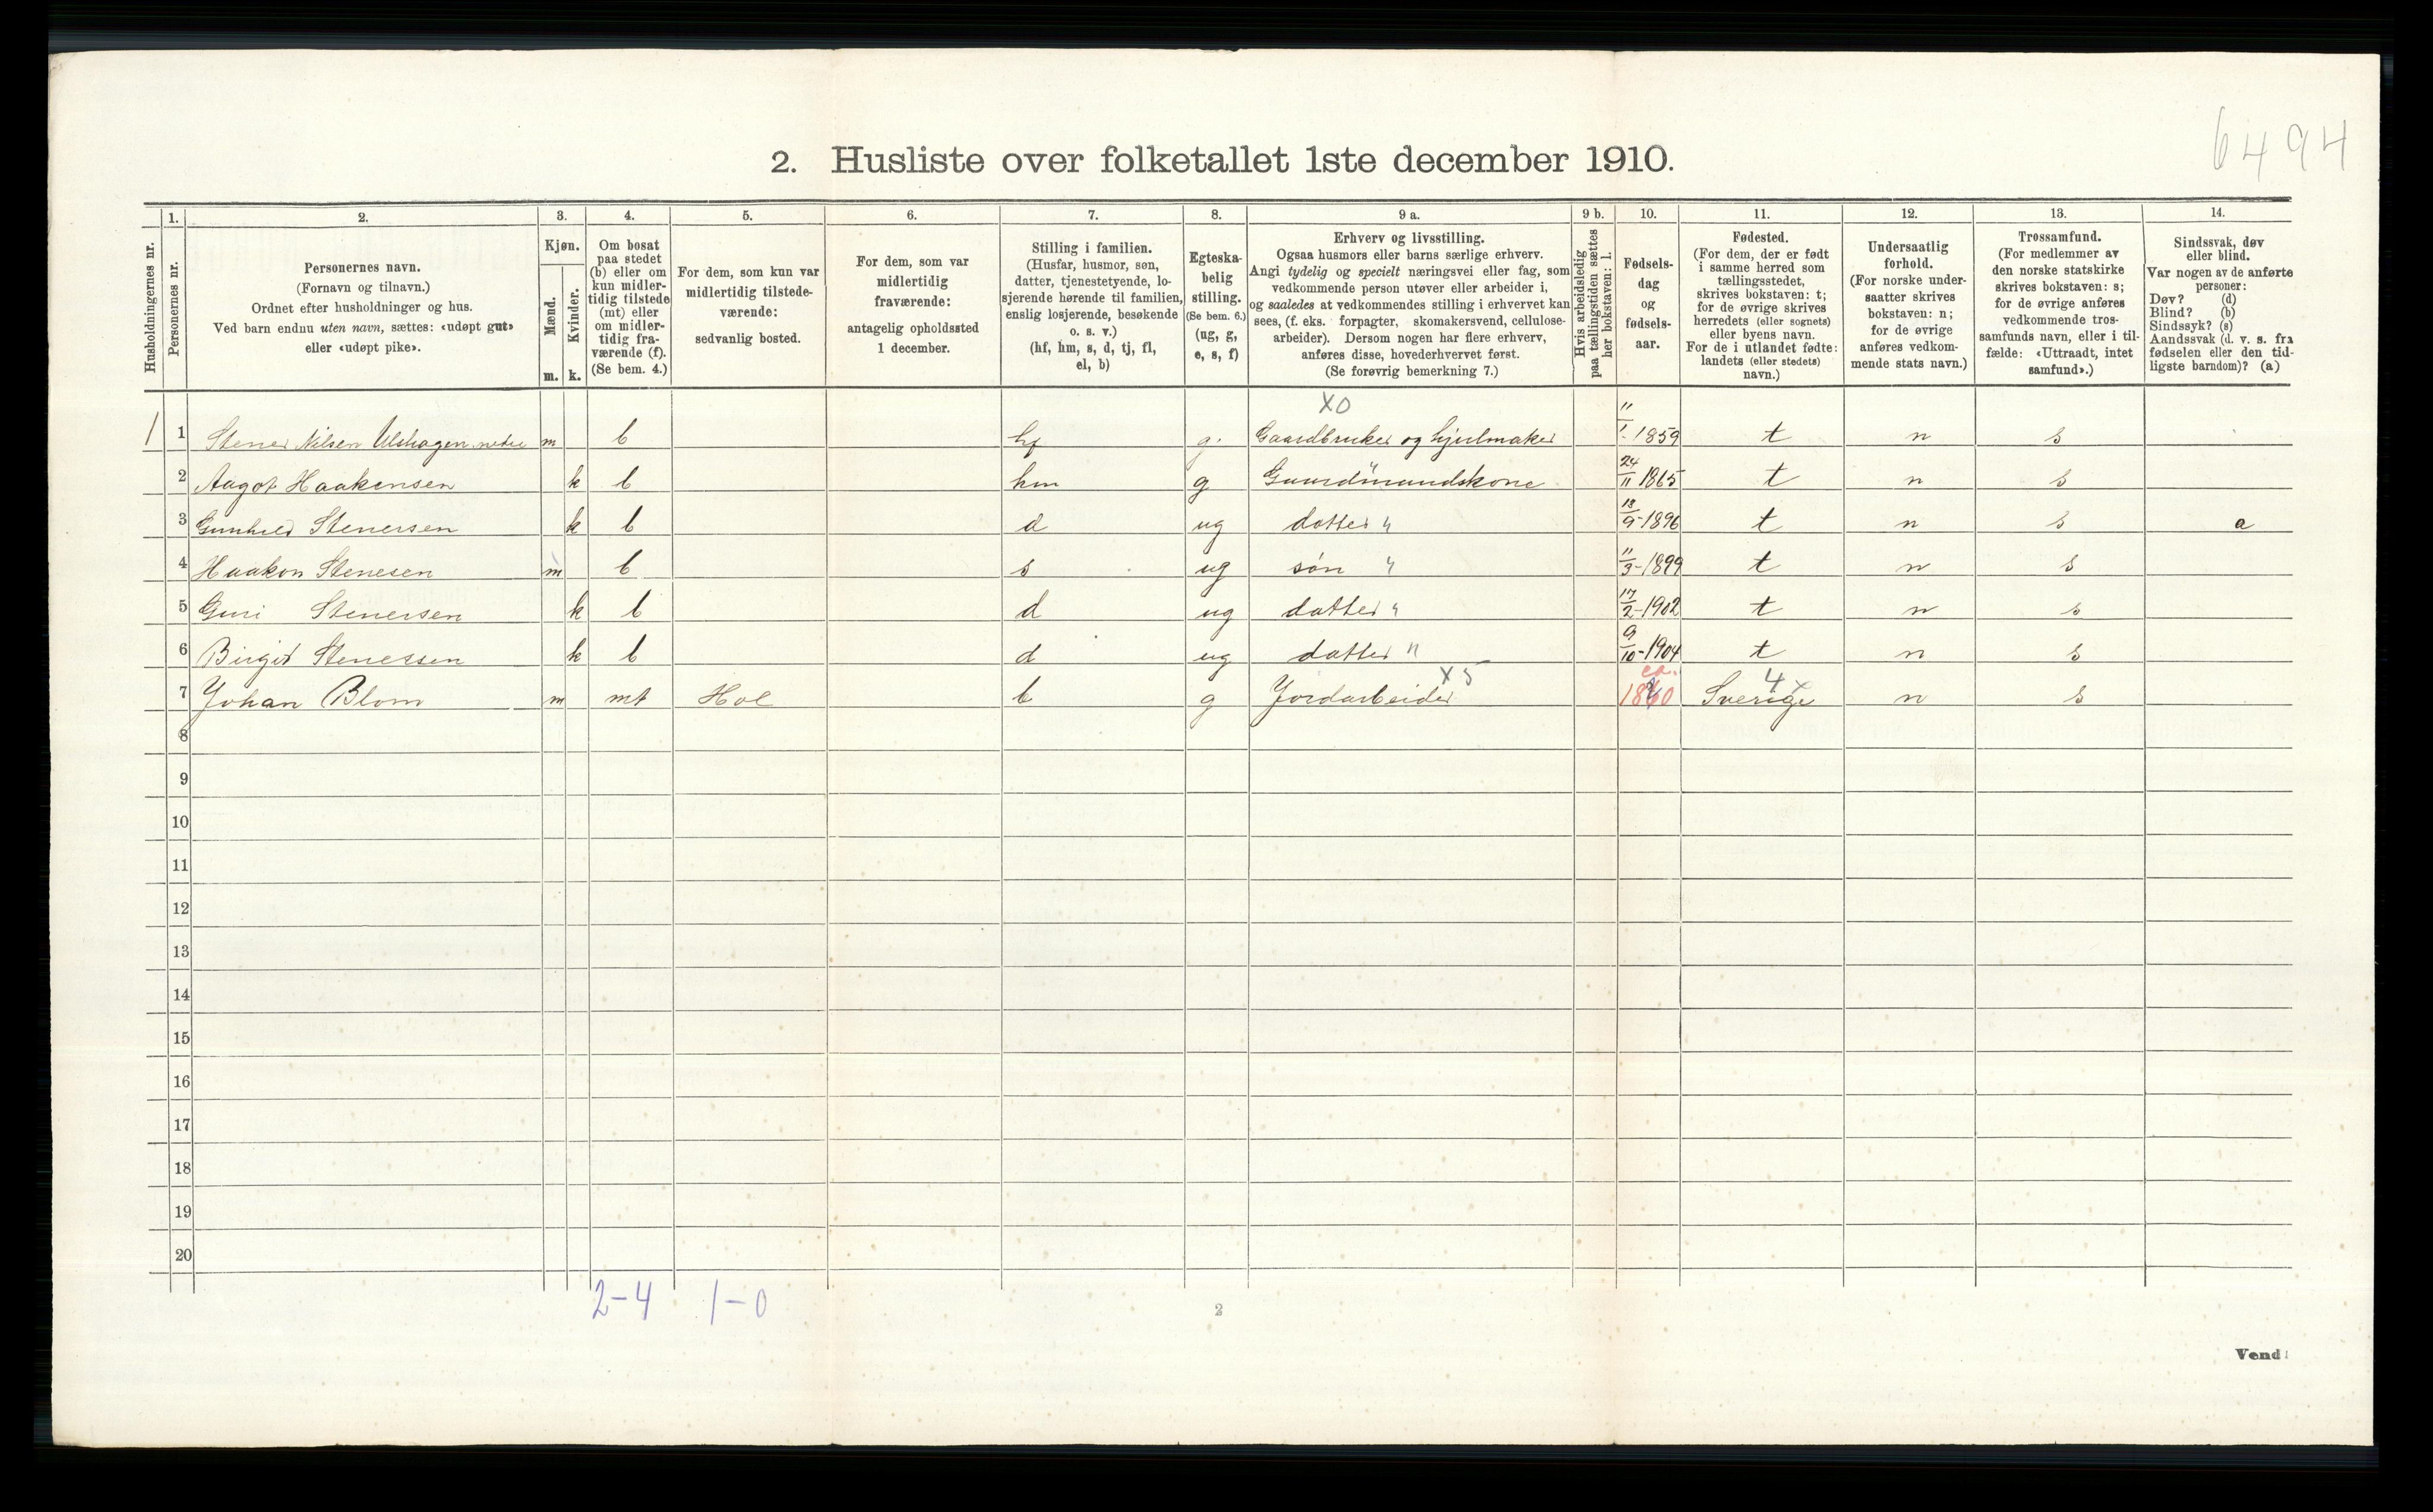 6494
2. Husliste over folketallet 1ste december 1910.
Husholdningernes nr.
1.
Personernes nr.
2.
Personernes navn.
(Fornavn og tilnavn.)
Ordnet efter husholdninger og hus.
Ved barn endnu uten navn, sættes: «udøpt gut»
eller «udøpt pike».
3.
Kjøn.
Mænd.
m.
Kvinder.
k.
4.
Om bosat
paa stedet
(b) eller om
kun midler-
tidig tilstede
(mt) eller
om midler-
tidig fra-
værende (f).
(Se bem. 4.)
5.
For dem, som kun var
midlertidig tilstede-
værende:
sedvanlig bosted.
6.
For dem, som var
midlertidig
fraværende:
antagelig opholdssted
1 december.
7.
Stilling i familien.
(Husfar, husmor, søn,
datter, tjenestetyende, lo-
sjerende hørende til familien,
enslig losjerende, besøkende
o. s. v.)
(hf, hm, s, d, tj, fl,
el, b)
8.
Egteska-
belig
stilling.
(Se bem. 6.)
(ug, g,
e, s, f)
9 a.
Erhverv og livsstilling.
Ogsaa husmors eller barns særlige erhverv.
Angi tydelig og specielt næringsvei eller fag, som
vedkommende person utøver eller arbeider i,
og saaledes at vedkommendes stilling i erhvervet kan
sees, (f. eks. forpagter, skomakersvend, cellulose-
arbeider). Dersom nogen har flere erhverv,
anføres disse, hovederhvervet først.
(Se forøvrig bemerkning 7.)
9 b.
Hvis arbeidsledig
paa tællingstiden sættes
her bokstaven: l.
10.
Fødsels-
dag
og
fødsels-
aar.
11.
Fødested.
(For dem, der er født
i samme herred som
tællingsstedet,
skrives bokstaven: t;
for de øvrige skrives
herredets (eller sognets)
eller byens navn.
For de i utlandet fødte:
landets (eller stedets)
navn.)
12.
Undersaatlig
forhold.
(For norske under-
saatter skrives
bokstaven: n;
for de øvrige
anføres vedkom-
mende stats navn.)
13.
Trossamfund.
(For medlemmer av
den norske statskirke
skrives bokstaven: s;
for de øvrige anføres
vedkommende tros-
samfunds navn, eller i til-
fælde: «Uttraadt, intet
samfund».)
14.
Sindssvak, døv
eller blind.
Var nogen av de anførte
personer:
Døv? (d)
Blind? (b)
Sindssyk? (s)
Aandssvak (d. v. s. fra
fødselen eller den tid-
ligste barndom)? (a)
X0
1 1 Stener Nilsen Ulshagen nedre m b hf g. Gaardbruker og hjulmaker 11/1-1859 t n s
2 Aagot Haakensen k b hm g Gaardmandskone 24/11 1865 t n s
3 Gunhild Stenersen k b d ug datter " 13/9-1896 t n s a
4 Haakon Stenesen m b s ug søn " 11/3-1899 t n s
5 Guri Stenersen k b d ug datter " 17/2-1902 t n s
6 Birgit Stenersen k b d ug datter " 9/10-1904 t n s
X5 ca. 4 x
7 Johan Blom m mt Hol b g Jordarbeider 1860 Sverige n s
8
9
10
11
12
13
14
15
16
17
18
19
20
2-4 1-0
2
Vend!